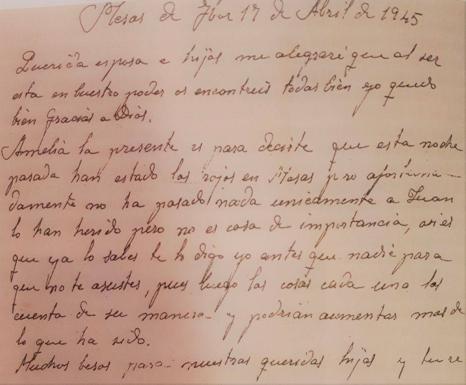 Mesas de Ibor 17 de Abril de 1945
Querida esposa e hijos me alegraré que al ser
esta en buestro poder os encontreis todas bien yo quedo
bien Gracias a Dios.
Amelia la presente es para decirte que esta noche
pasada han estado los rojos en Mesas pero afortuna-
damente no ha pasado nada unicamente a Juan
lo han herido pero no es cosa de importancia, asi es
que ya lo sabes te lo digo yo antes que nadie para
que no te asustes, pues luego las cosas cada uno las
cuenta de su manera y podrian aumentar mas de
lo que ha sido.
Muchos besos para nuestras queridas hijas y tu re